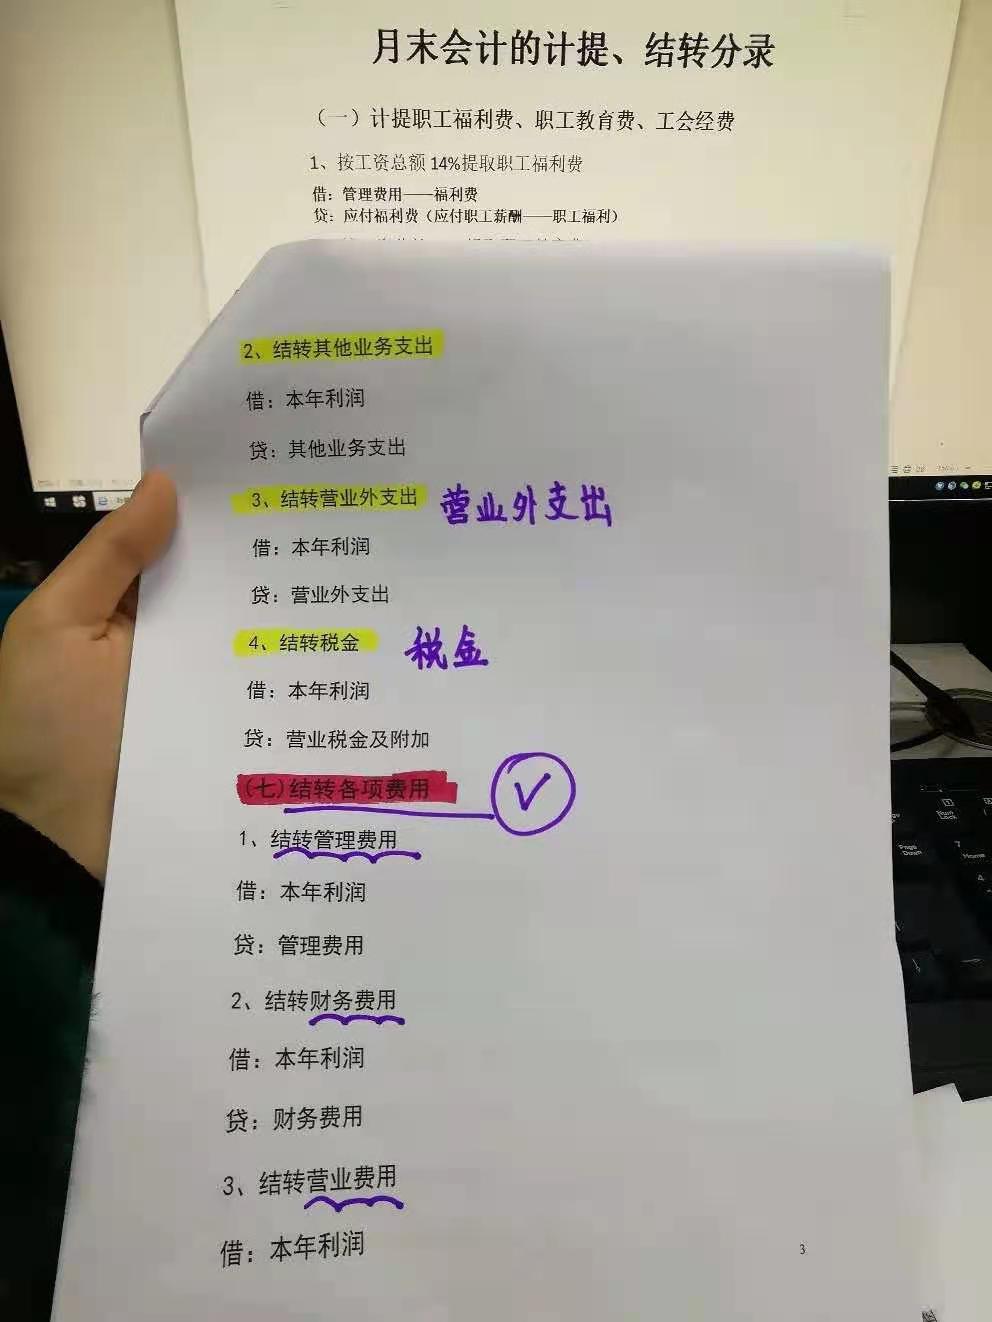 月末会计的计提、结转分录
（一）计提职工福利费、职工教育费、工会经费
1、按工资总额14%提取职工福利费
借：管理费用——福利费
贷：应付福利费（应付职工薪酬——职工福利）
2、结转其他业务支出
借：本年利润
贷：其他业务支出
3、结转营业外支出 营业外支出
借：本年利润
贷：营业外支出
4、结转税金 税金
借：本年利润
贷：营业税金及附加
(七)结转各项费用
1、结转管理费用
借：本年利润
贷：管理费用
2、结转财务费用
借：本年利润
贷：财务费用
3、结转营业费用
借：本年利润
3
Num
Lock
PgDn
7
Home
4